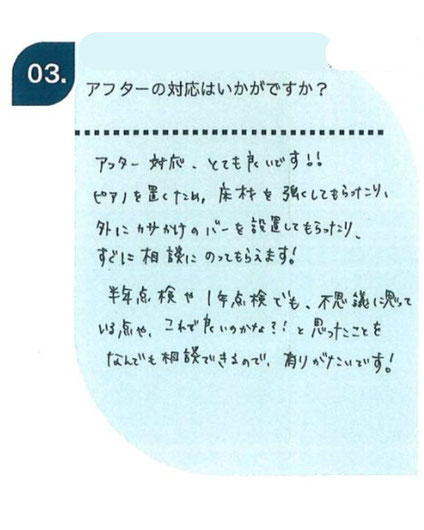 03.
アフターの対応はいかがですか?
アフター対応、とても良いです!!
ピアノを置くため、床材を強くしてもらったり、
外にカサかけのバーを設置してもらったり、
すぐに相談にのってもらえます!
半年点検や1年点検でも、不思議に思って
いる点や、これで良いのかな?!と思ったことを
なんでも相談できるので、有りがたいです!